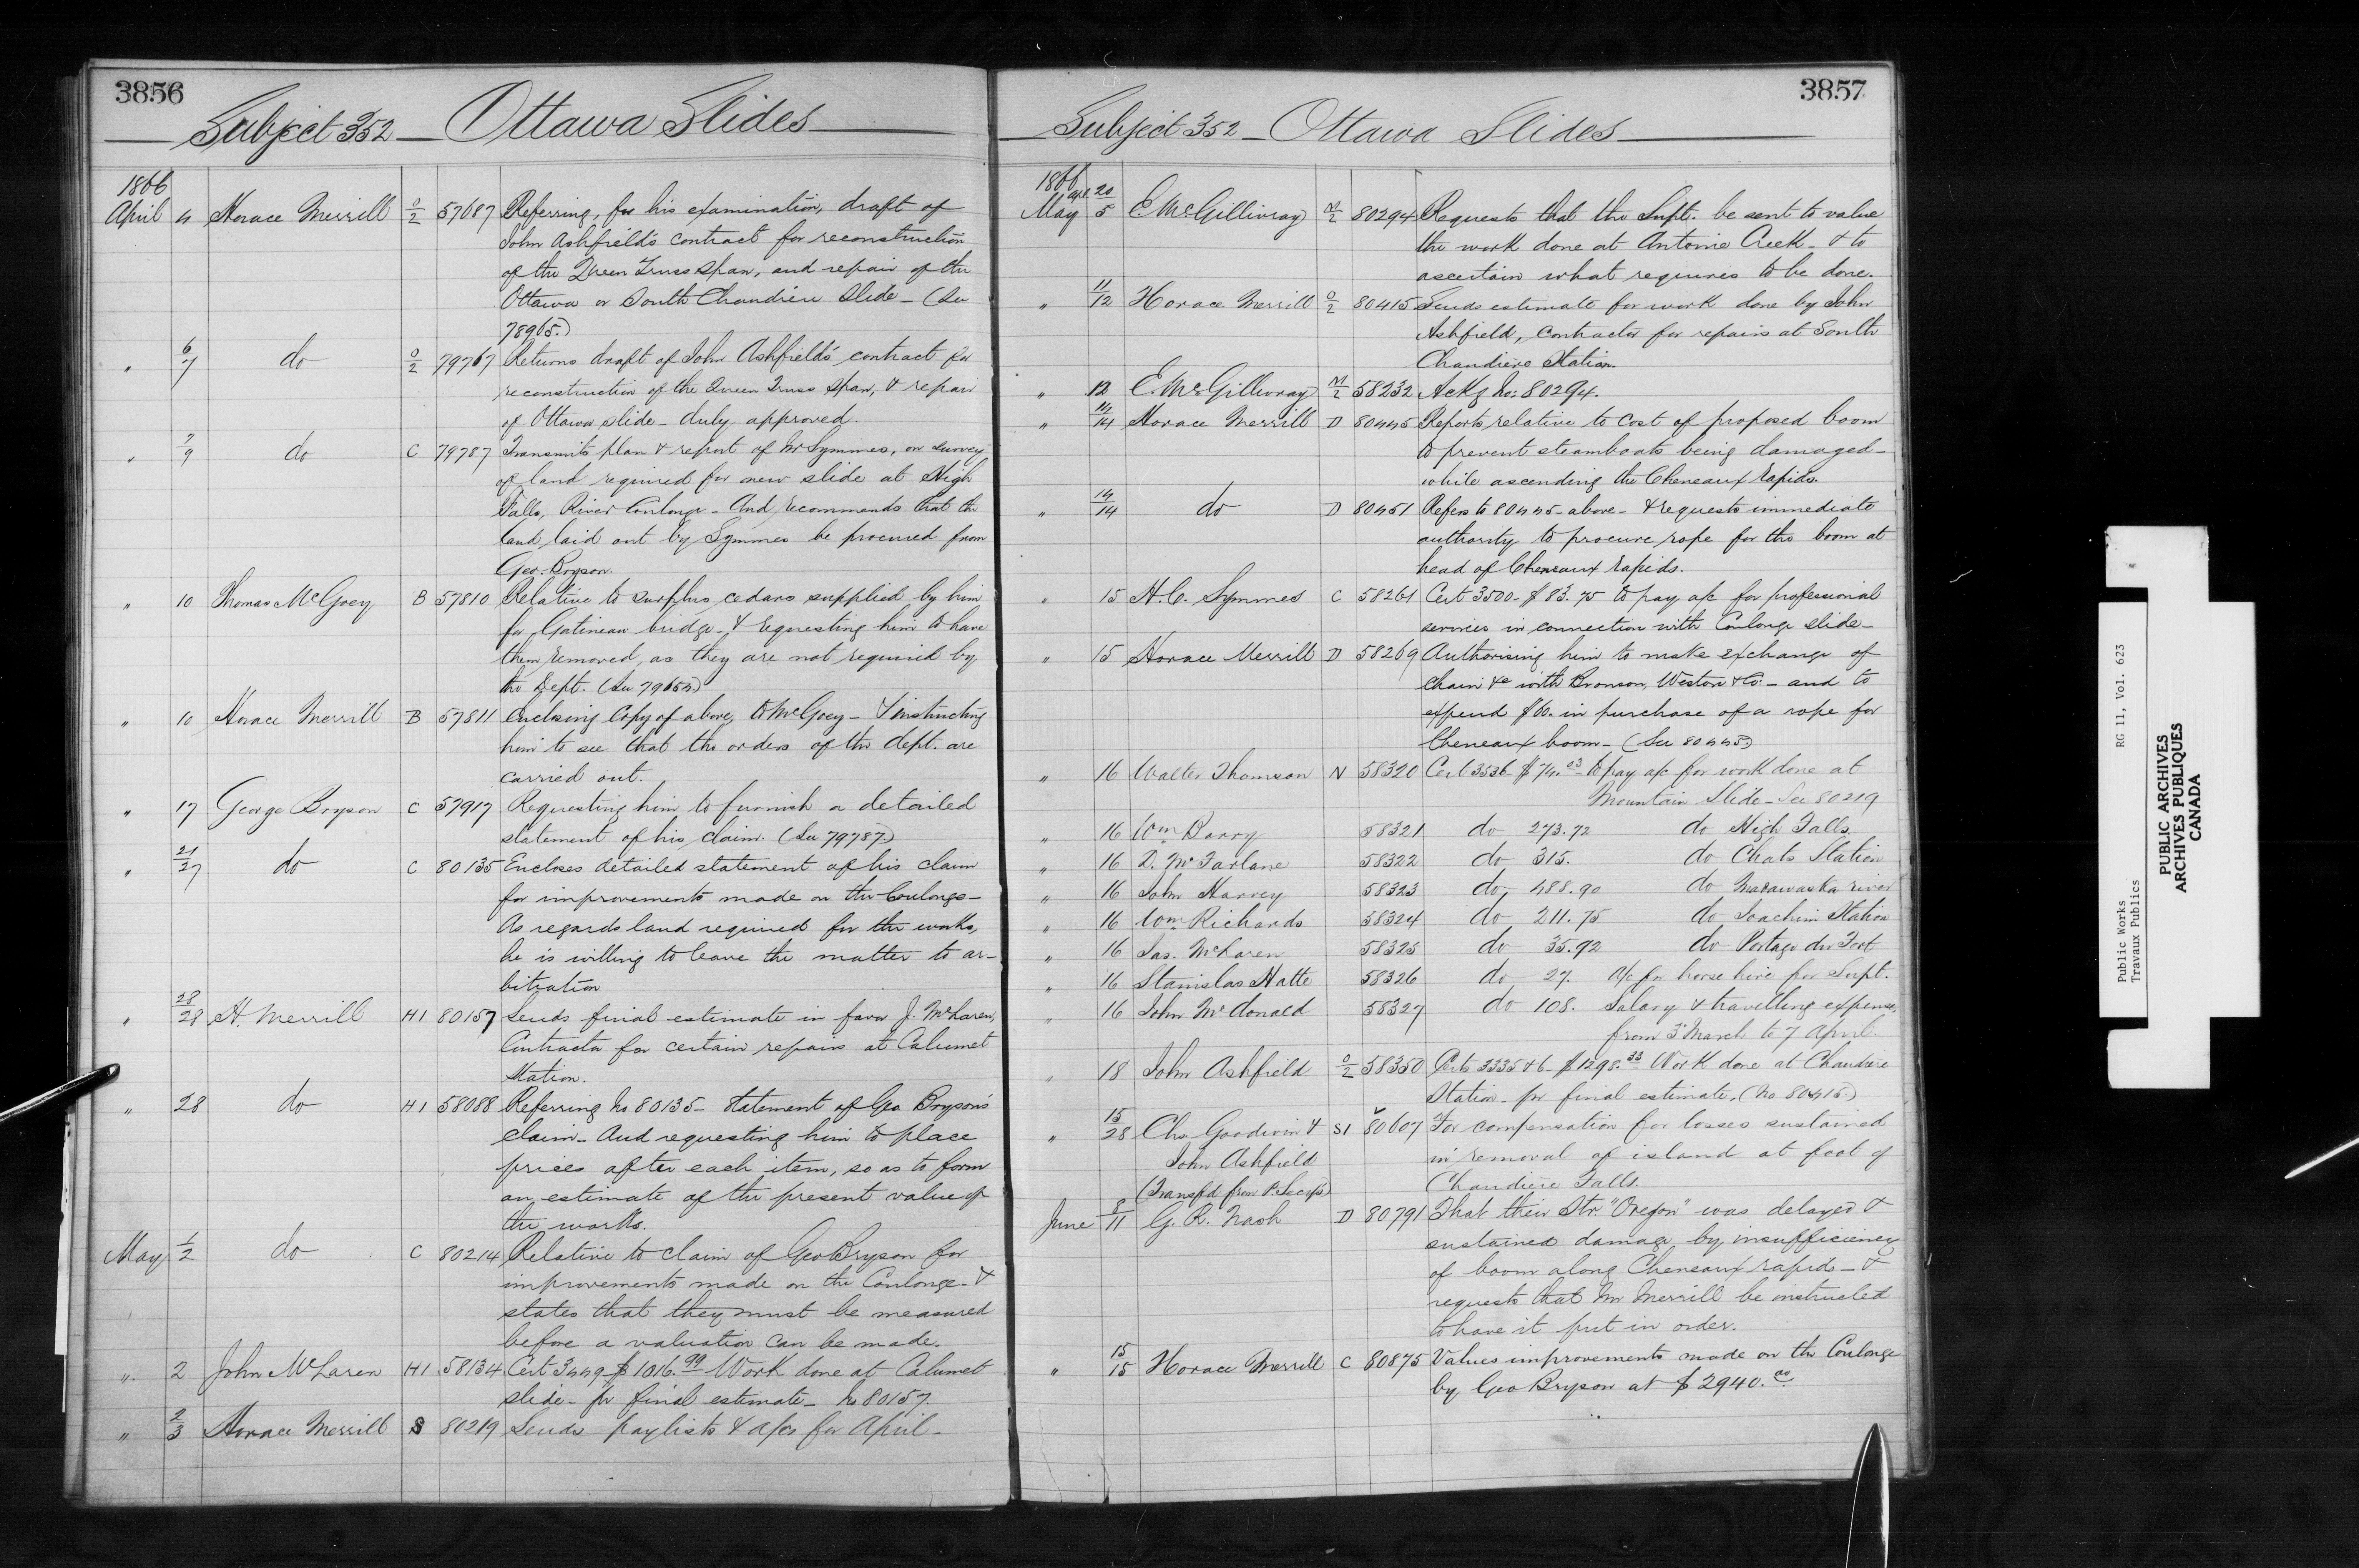 3856
Subject 352 — Ottawa Slides
1866
April 4 Horace Merrill O/2 57687 Referring, for his examination, draft of
John Ashfield's contract for reconstruction
of the Queen Truss Span, and repair of the
Ottawa or South Chaudière Slide — (See
78965.)
" 6/7 do O/2 79767 Returns draft of John Ashfield's contract for
reconstruction of the Queen Truss Span, & repair
of Ottawa slide — duly approved.
" 7/9 do C 79787 Transmits plan & report of Mr Symmes, on survey
of land required for new slide at High
Falls, River Coulonge — And recommends that the
land laid out by Symmes be procured from
Geo. Bryson.
" 10 Thomas McGoey B 57810 Relative to surplus cedars supplied by him
for Gatineau bridge — & requesting him to have
them removed, as they are not required by
the Dept. (See 79654)
" 10 Horace Merrill B 57811 Enclosing Copy of above, to McGoey — & instructing
him to see that the orders of the dept. are
carried out.
" 17 George Bryson C 57917 Requesting him to furnish a detailed
statement of his claim. (See 79787.)
" 21/27 do C 80135 Encloses detailed statement of his claim
for improvements made on the Coulonge —
As regards land required for the works,
he is willing to leave the matter to ar-
bitration
" 28/28 H. Merrill H1 80157 Sends final estimate in favor J. McLaren,
Contractor for certain repairs at Calumet
Station.
" 28 do H1 58088 Referring No 80135 — Statement of Geo Bryson's
claim — And requesting him to place
prices after each item, so as to form
an estimate of the present value of
the works.
May 1/2 do C 80214 Relative to claim of Geo Bryson for
improvements made on the Coulonge — &
states that they must be measured
before a valuation can be made.
" 2 John McLaren H1 58134 Cert 3449 $1016.99 Work done at Calumet
slide — pr final estimate — No 80157.
" 2/3 Horace Merrill S 80219 Sends paylists & a/cs for April —
3857
Subject 352 — Ottawa Slides
1866
May apl 20/5 E McGillivray N/2 80294 Requests that the Supt. be sent to value
the work done at Antoine Creek — & to
ascertain what requires to be done.
" 11/12 Horace Merrill O/2 80415 Sends estimate for work done by John
Ashfield, Contractor for repairs at South
Chaudière Station.
" 12 E. McGillivray N/2 58232 Ackg No: 80294.
" 14/14 Horace Merrill D 80445 Reports relative to cost of proposed boom
to prevent steamboats being damaged —
while ascending the Cheneaux Rapids.
" 14/14 do D 80451 Refers to 80445 — above — & requests immediate
authority to procure rope for the boom at
head of Cheneaux Rapids.
" 15 H. C. Symmes C 58261 Cert 3500 — $83.75 to pay a/c for professional
services in connection with Coulonge slide —
" 15 Horace Merrill D 58269 Authorising him to make exchange of
chain &c with Bronson, Weston & Co: — and to
expend $60. in purchase of a rope for
Cheneaux boom — (See 80445.)
" 16 Walter Thomson N 58320 Cert 3536 $ to pay a/c for work done at
Mountain Slide — See 80219
" 16 Wm Barry 58321 do 273.72 do High Falls.
" 16 D. McFarlane 58322 do 315. do Chats Station
" 16 John Harvey 58323 do 488.90 do Madawaska river
" 16 Wm Richards 58324 do 211.75 do Joachim Station
" 16 Jas. McLaren 58325 do 35.92 do Portage du Fort
" 16 Stanislas Hatte 58326 do 27. A/c for horse hire for Supt.
" 16 John McDonald 58327 do 108. Salary & travelling expenses
from 3 March to 7 April
" 18 John Ashfield O/2 58350 Certs 3335 & 6 — $1298.33 Work done at Chaudière
Station — pr final estimate. (No 80415.)
" 15/28 Chs Goodwin & S1 80607 For compensation for losses sustained
John Ashfield in removal of island at foot of
(Transf'd from P. Sec'ys) Chaudière Falls.
June 8/11 G. R. Nash D 80791 That their Str "Oregon" was delayed &
sustained damage by insufficiency
of boom along Cheneaux rapids — &
requests that Mr Merrill be instructed
to have it put in order.
" 15/15 Horace Merrill C 80875 Values improvements made on the Coulonge
by Geo Bryson at $2940.00
Public Works RG 11, Vol. 623
Travaux Publics
PUBLIC ARCHIVES
ARCHIVES PUBLIQUES
CANADA